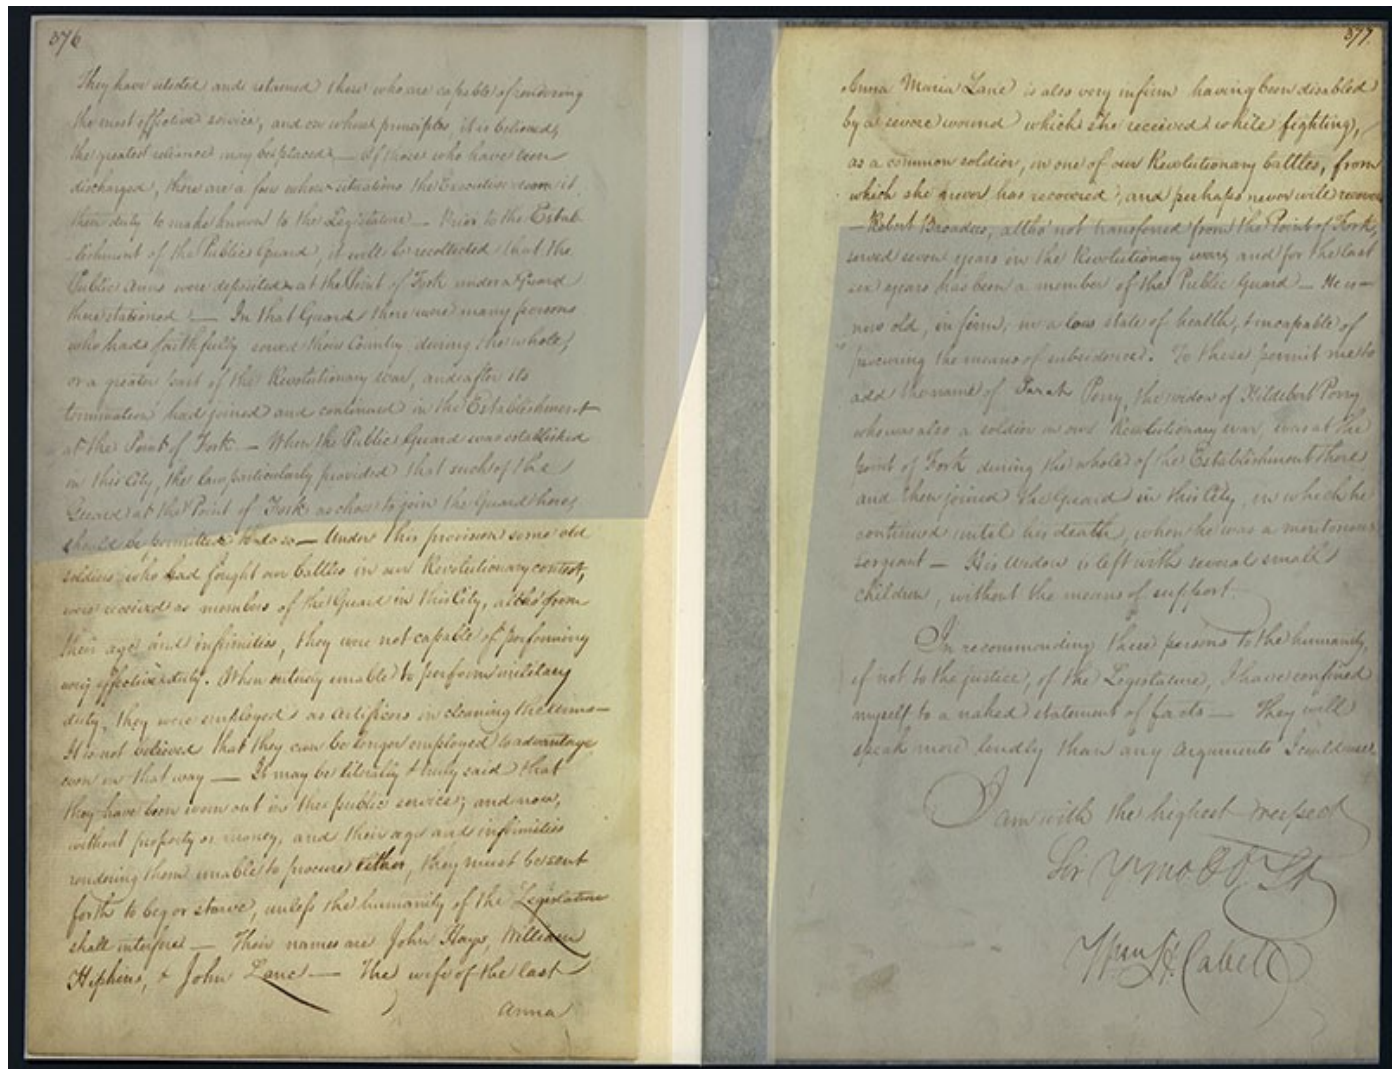 376
They have selected and retained those who are capable of rendering
the most effective service, and on whose principles, it is believed,
the greatest reliance may be placed — Of those who have been
discharged, there are a few whose situations the Executive deem it
their duty to make known to the Legislature — Prior to the Estab-
lishment of the Public Guard, it will be recollected that the
Public Arms were deposited at the Point of Fork under a Guard
there stationed — In that Guard there were many persons
who had faithfully served their Country, during the whole,
or a greater part of the Revolutionary war, and after its
termination had joined and continued in the Establishment
at the Point of Fork — When the Public Guard was established
in this City, the law particularly provided that such of the
Guard at the Point of Fork as chose to join the Guard here,
should be permitted to do so — Under this provision some old
soldiers who had fought our battles in our Revolutionary contest,
were received as members of the Guard in this City, altho' from
their age and infirmities, they were not capable of performing
very effective duty. When entirely unable to perform military
duty, they were employed as artificers in cleaning the arms —
It is not believed that they can be longer employed to advantage
even in that way — It may be literally & truly said that
they have been worn out in the public service; and now,
without property or money, and their age and infirmities
rendering them unable to procure either, they must be sent
forth to beg or starve, unless the humanity of the Legislature
shall interfere — Their names are John Hays, William
Hipkins, & John Lane — The wife of the last
Anna
377.
Anna Maria Lane is also very infirm having been disabled
by a severe wound which she received while fighting,
as a common soldier, in one of our Revolutionary battles, from
which she never has recovered, and perhaps never will recover
— Robert Broaders, altho' not transferred from the Point of Fork,
served seven years in the Revolutionary war, and for the last
six years has been a member of the Public Guard — He is
now old, infirm, in a low state of health, & incapable of
procuring the means of subsistence. To these permit me to
add the name of Sarah Perry, the widow of Hildebert Perry
who was also a soldier in our Revolutionary war, was at the
Point of Fork during the whole of the Establishment there
and then joined the Guard in this City, in which he
continued until his death, when he was a meritorious
sergeant — His widow is left with several small
children, without the means of support.
In recommending these persons to the humanity,
if not to the justice, of the Legislature, I have confined
myself to a naked statement of facts — They will
speak more loudly than any arguments I could use.
I am with the highest respect
Sir Yr mo Ob. St
Wm H. Cabell